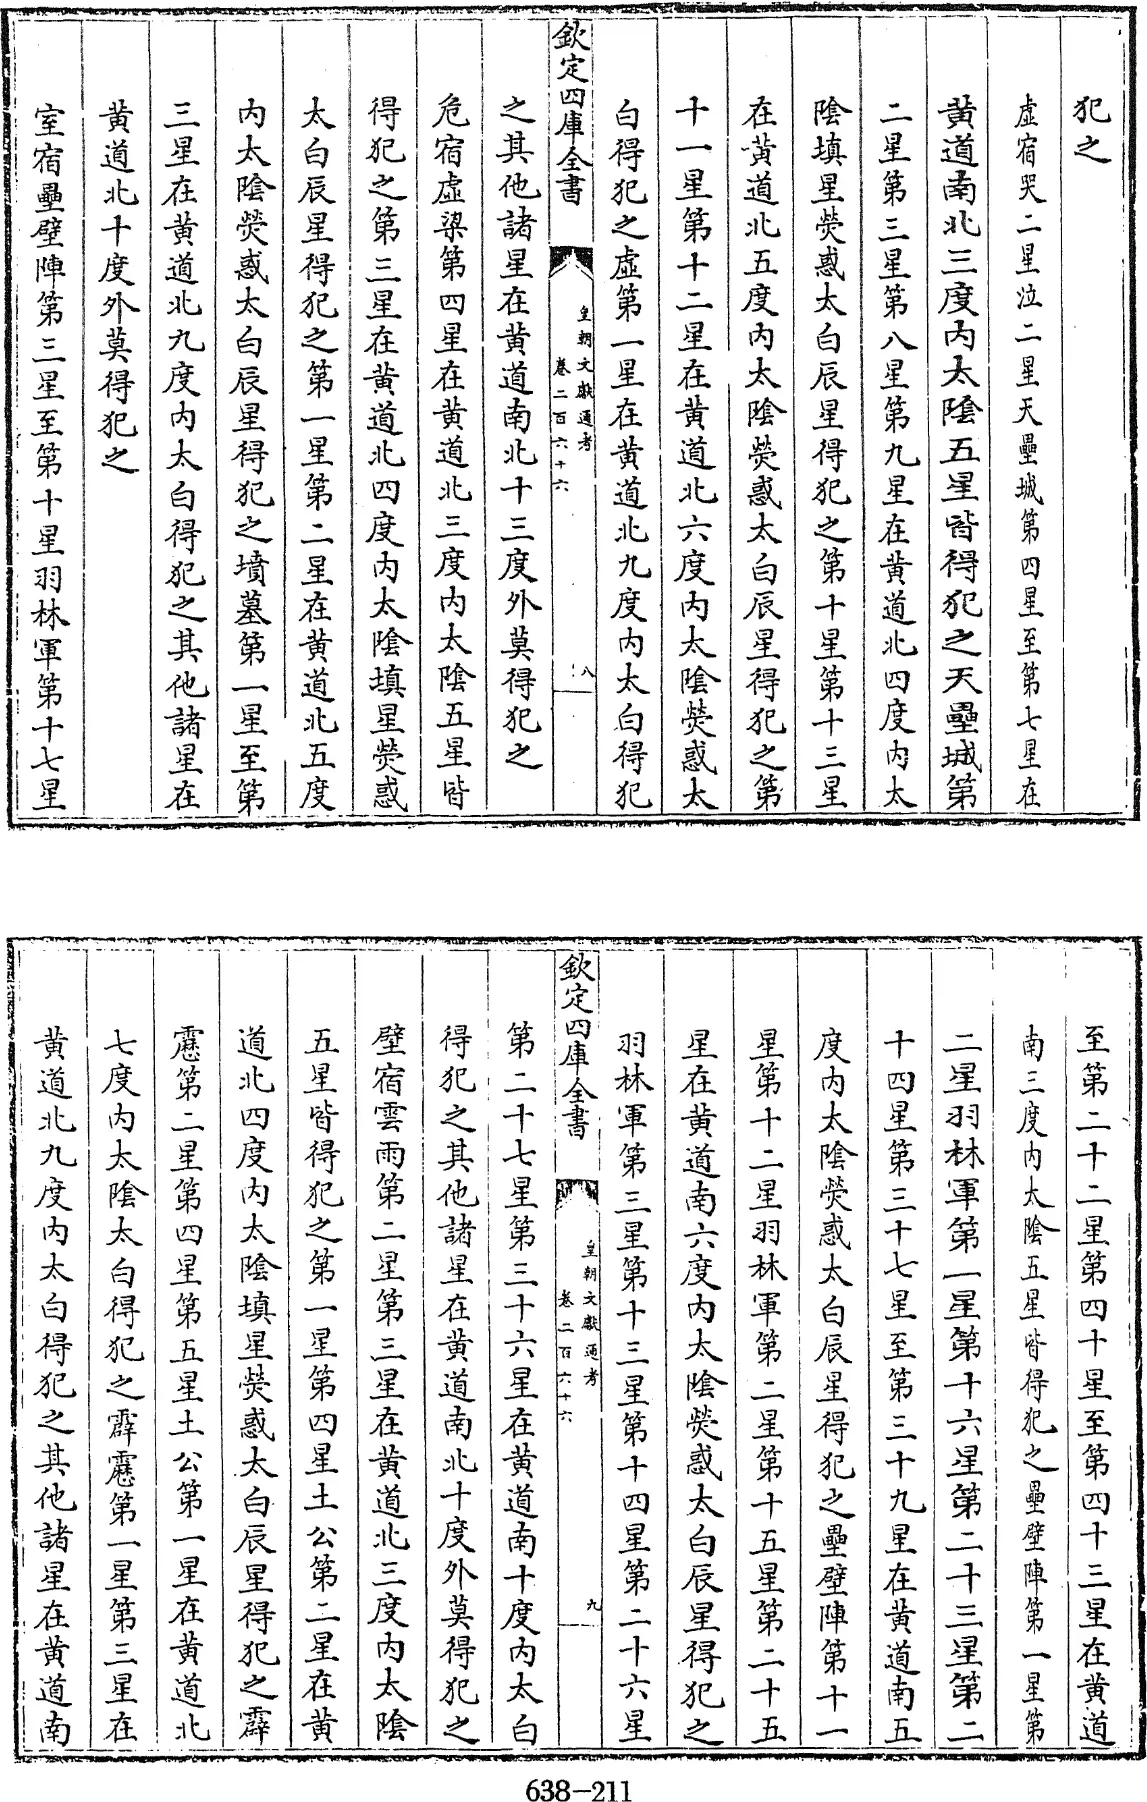 犯之
虛宿哭二星泣二星天壘城第四星至第七星在
黃道南北三度内太陰五星皆得犯之天壘城第
二星第三星第八星第九星在黃道北四度内太
陰填星熒惑太白辰星得犯之第十星第十三星
在黃道北五度内太陰熒惑太白辰星得犯之第
十一星第十二星在黃道北六度内太陰熒惑太
白得犯之虛第一星在黃道北九度内太白得犯
欽定四庫全書
皇朝文獻通考
卷二百六十六
八
之其他諸星在黃道南北十三度外莫得犯之
危宿虛梁第四星在黃道北三度内太陰五星皆
得犯之第三星在黃道北四度内太陰填星熒惑
太白辰星得犯之第一星第二星在黃道北五度
内太陰熒惑太白辰星得犯之墳墓第一星至第
三星在黃道北九度内太白得犯之其他諸星在
黃道北十度外莫得犯之
室宿壘壁陣第三星至第十星羽林軍第十七星
至第二十二星第四十星至第四十三星在黃道
南三度内太陰五星皆得犯之壘壁陣第一星第
二星羽林軍第一星第十六星第二十三星第二
十四星第三十七星至第三十九星在黃道南五
度内太陰熒惑太白辰星得犯之壘壁陣第十一
星第十二星羽林軍第二星第十五星第二十五
星在黃道南六度内太陰熒惑太白辰星得犯之
羽林軍第三星第十三星第十四星第二十六星
欽定四庫全書
皇朝文獻通考
卷二百六十六
九
第二十七星第三十六星在黃道南十度内太白
得犯之其他諸星在黃道南北十度外莫得犯之
壁宿雲雨第二星第三星在黃道北三度内太陰
五星皆得犯之第一星第四星土公第二星在黃
道北四度内太陰填星熒惑太白辰星得犯之霹
靂第二星第四星第五星土公第一星在黃道北
七度内太陰太白得犯之霹靂第一星第三星在
黃道北九度内太白得犯之其他諸星在黃道南
638-211